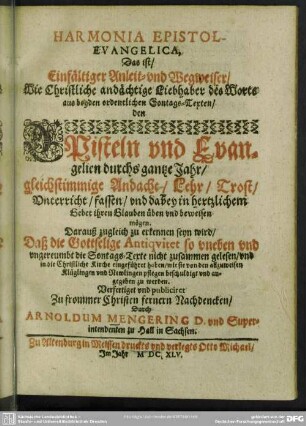 HARMONIA EPISTOL-
EVANGELICA,
Das ist/
Einfältiger Anleit- vnd Wegweiser/
Wie Christliche andächtige Liebhaber des Worts
aus beyden ordentlichen Sontags-Texten/
den
EPisteln vnd Evan-
gelien durchs gantze Jahr/
gleichstimmige Andacht-/ Lehr/ Trost/
Vnterricht/ fassen/ vnd dabey in hertzlichem
Gebet ihren Glauben üben vnd beweisen
mögen.
Darauß zugleich zu erkennen seyn wird/
Daß die Gottselige Antiqvitet so vneben vnd
vngereumbt die Sontags-Texte nicht zusammen gelesen/ vnd
in die Christliche Kirche eingeführet haben/ wie sie von den allzuweisen
Klüglingen vnd pflegen beschuldigt vnd an-
gegeben zu werden.
Verfertiget vnd publiciret
Zu frommer Christen fernern Nachdencken/
Durch
ARNOLDUM MENGERING D. vnd Super-
intendenten zu Hall in Sachsen.
Zu Altenburg in Meissen druckts vnd verlegts Otto Michael/
Im Jahr M DC, XLV.